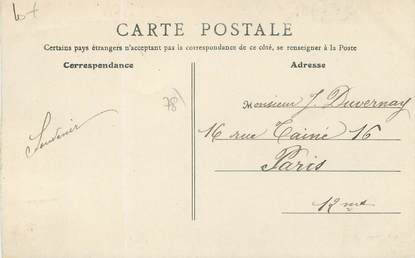 CARTE POSTALE
Certains pays étrangers n'acceptant pas la correspondance de ce côté, se renseigner à la Poste
Correspondance
Adresse
78
Souvenir
Monsieur J. Duvernay
16 rue Taine 16
Paris
12 me